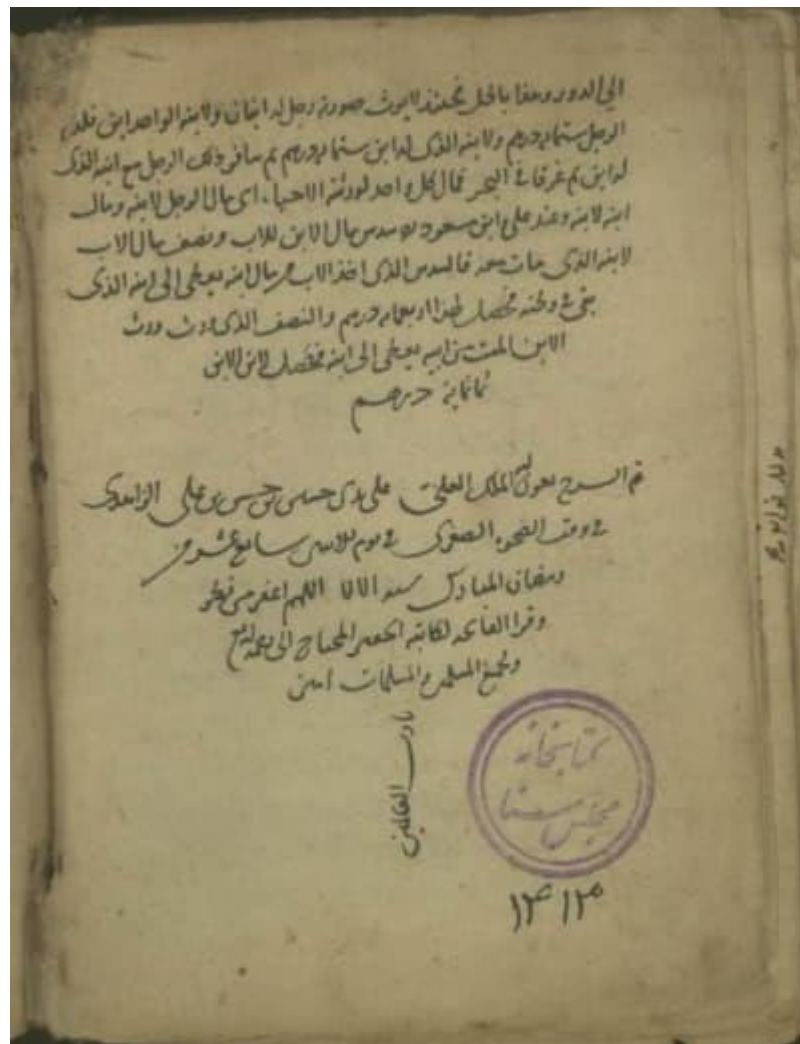 الي الدور وهما باطل فحينئذ لا يورث صورته رجل له ابنان ولابنه الواحد ابن فلذلك
الرجل ستمائة درهم ولابنه الذى له ابن ستمائة درهم ثم سافر ذلك الرجل مع ابنه الذى
له ابن ثم غرقا فى البحر فمال كل واحد لورثته الاحياء اى مال الرجل لابنه ومال
ابنه لابنه وعند على وابن مسعود سدس مال الابن للاب ونصف مال الاب
لابنه الذى مات معه فالسدس الذى اخذ الاب من مال ابنه يعطى الى ابنه الذى
بقى فى وطنه فحصل لهذا اربعمائة درهم والنصف الذى ورث
الابن الميت من ابيه يعطى الى ابنه فحصل لابن الابن
ثمانمائة درهم
تم الشرح بعون الملك العلى على يدى حسين بن حسن بن على
فى وقت الضحوة الصغرى فى يوم الاثنين سابع عشر من
رمضان المبارك سنه اللهم اغفر من نظر
وقرا الفاتحه لكاتبه الحقير المحتاج الى رحمة ربه
ولجميع المسلمين والمسلمات امين
يا رب العالمين
كتابخانه
مجلس سنا
۱۴۱۳